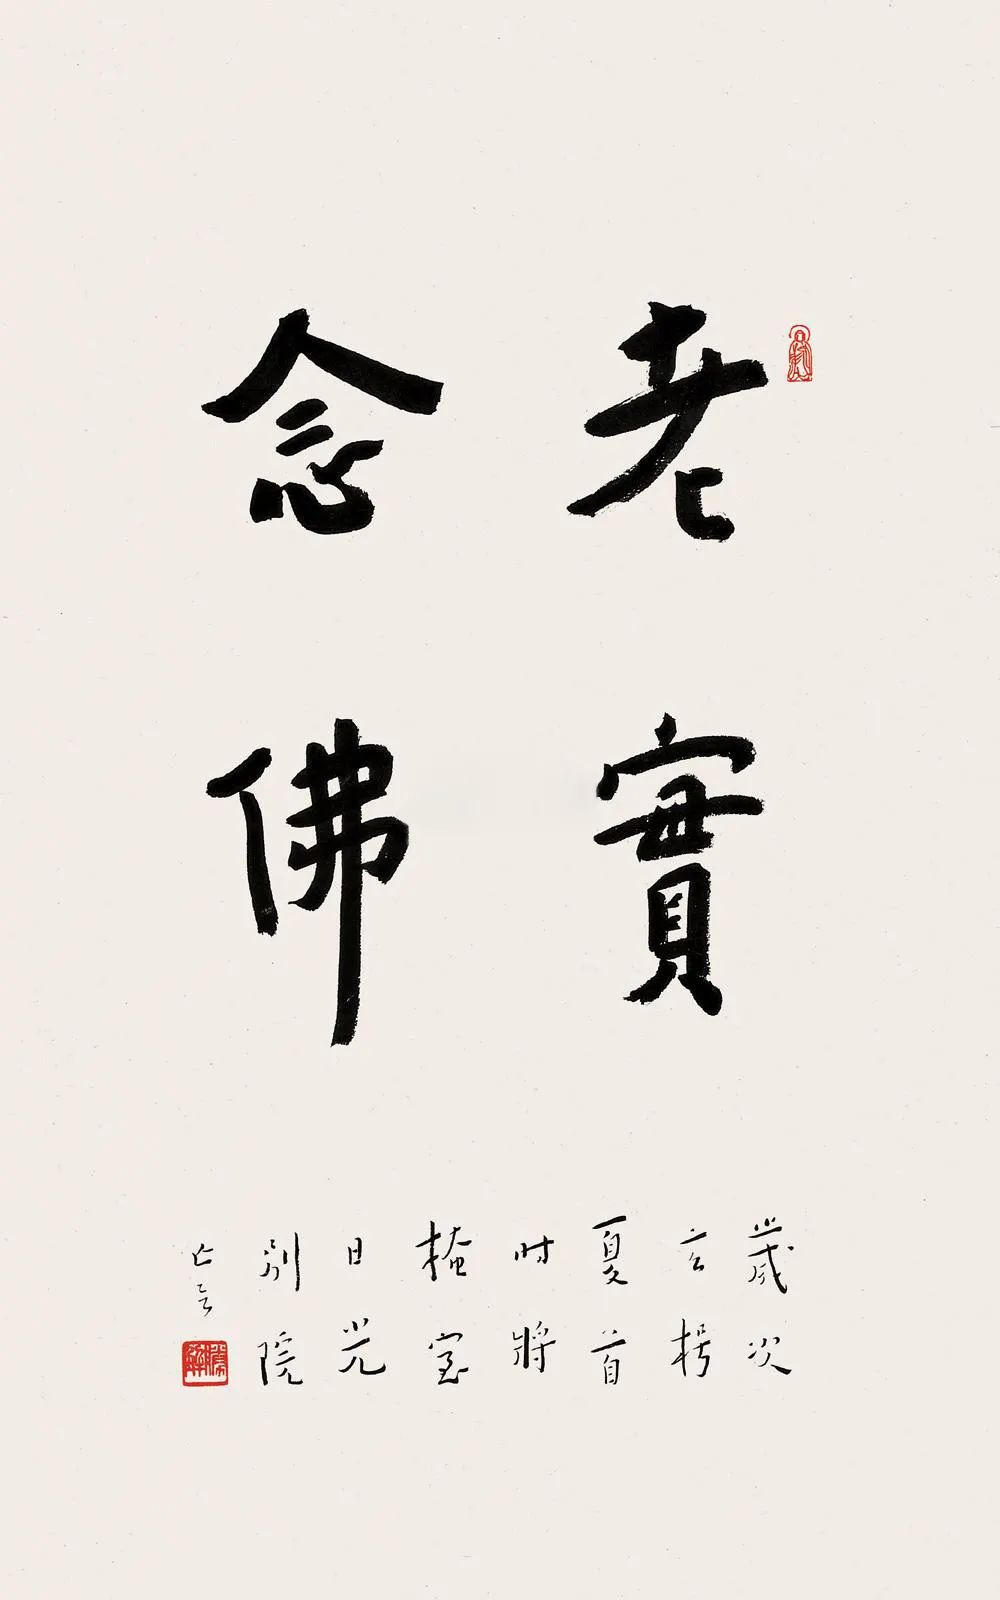 老實
念佛
歲次
玄枵
夏首
時將
掩室
日光
別院
亡言